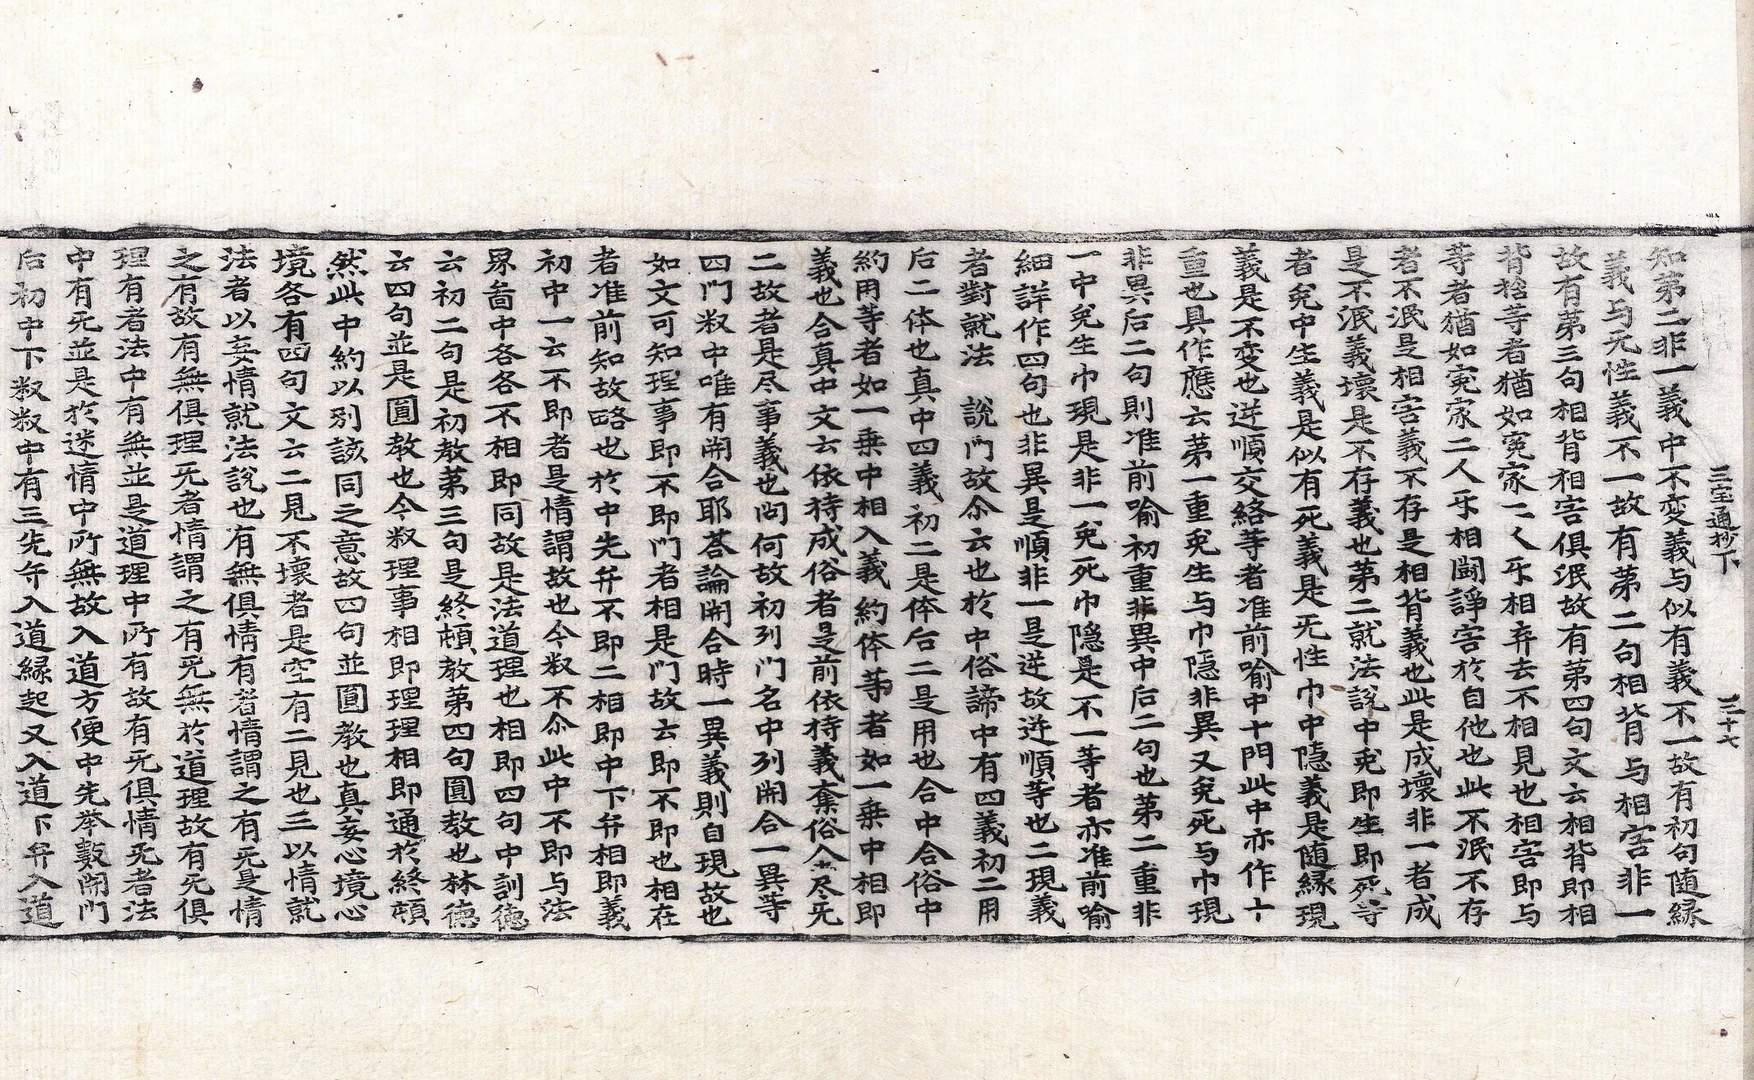 三宝通抄下　三十七
知第二非一義中不変義与似有義不一故有初句随縁
義与无性義不一故有第二句相背与相害非一
故有第三句相背相害俱泯故有第四句文云相背即相
背捨等者猶如寃家二人乐相弃去不相見也相害即与
等者猶如寃家二人乐相鬪諍害於自他也此不泯不存
者不泯是相害義不存是相背義也此是成壊非一者成
是不泯義壊是不存義也第二就法說中兎即生即死等
者兎中生義是似有死義是无性巾中隱義是随縁現
義是不変也逆順交絡等者准前喻中十門此中亦作十
重也具作應云第一重兎生与巾隱非異又兎死与巾現
非異后二句則准前喻初重非異中后二句也第二重非
一中兎生巾現是非一兎死巾隱是不一等者亦准前喻
細詳作四句也非異是順非一是逆故逆順等也二現義
者對就法　說門故尒云也於中俗諦中有四義初二用
后二体也真中四義初二是体后二是用也合中合俗中
約用等者如一乗中相入義約体等者如一乗中相即
義也合真中文云依持成俗者是前依持義奪俗入尽无
二故者是尽事義也問何故初列門名中列開合一異等
四門叙中唯有開合耶荅論開合時一異義則自現故也
如文可知理事即不即門者相是門故云即不即也相在
者准前知故略也於中先弁不即二相即中下弁相即義
初中一云不即者是情謂故也今叙不尒此中不即与法
界啚中各各不相即同故是法道理也相即四句中訓德
云初二句是初教第三句是終頓教第四句圓教也林德
云四句並是圓教也今叙理事相即理理相即通於終頓
然此中約以別該同之意故四句並圓教也真妄心境心
境各有四句文云二見不壊者是空有二見也三以情就
法者以妄情就法說也有無俱情有者情謂之有无是情
之有故有無俱理无者情謂之有无無於道理故有无俱
理有者法中有無並是道理中所有故有无俱情无者法
中有无並是於迷情中所無故入道方便中先挙數開門
后初中下叙叙中有三先弁入道縁起又入道下弁入道